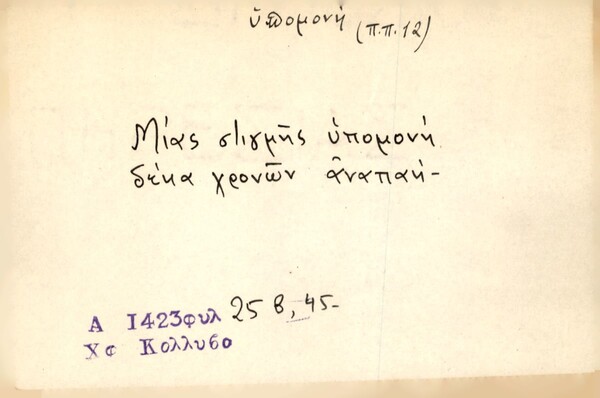 ὑπομονή (π.π. 12)
Μιᾶς στιγμῆς ὑπομονή
δέκα χρονῶν ἀναπαή-
Α 1423φυλ 25 β, 45-
Χφ Κολλυβο